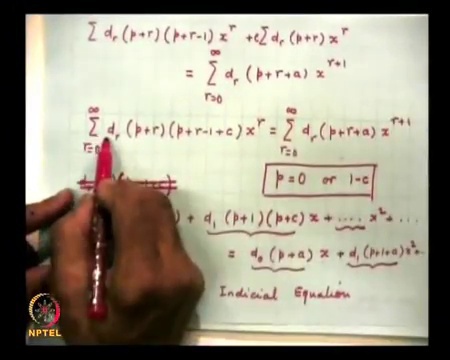 Σ d_r (p+r)(p+r-1) x^r + c Σ d_r (p+r) x^r
= Σ_{r=0}^{∞} d_r (p+r+a) x^{r+1}
Σ_{r=0}^{∞} d_r (p+r)(p+r-1+c) x^r = Σ_{r=0}^{∞} d_r (p+r+a) x^{r+1}
p = 0 or 1-c
) + d_1 (p+1)(p+c) x + .... x^2 + ...
= d_0 (p+a) x + d_1 (p+1+a) x^2 ...
Indicial Equation
NPTEL